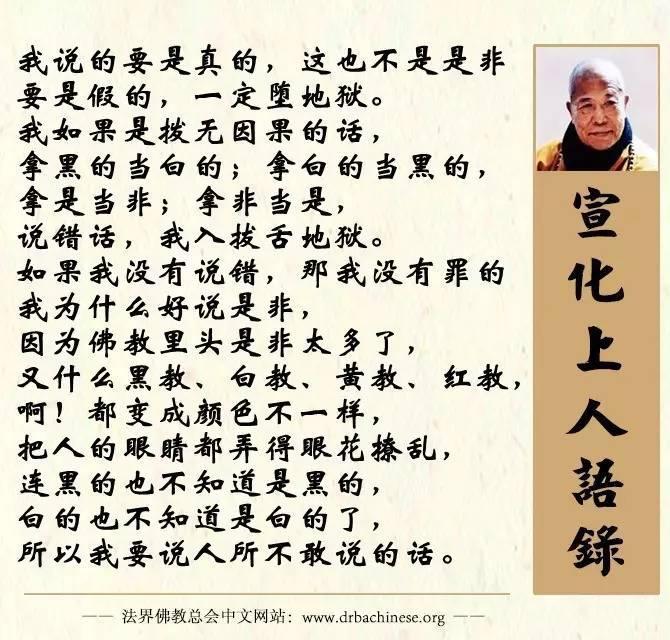 我说的要是真的，这也不是是非
要是假的，一定堕地狱。
我如果是拨无因果的话，
拿黑的当白的；拿白的当黑的，
拿是当非；拿非当是，
说错话，我入拔舌地狱。
如果我没有说错，那我没有罪的
我为什么好说是非，
因为佛教里头是非太多了，
又什么黑教、白教、黄教、红教，
啊！都变成颜色不一样，
把人的眼睛都弄得眼花撩乱，
连黑的也不知道是黑的，
白的也不知道是白的了，
所以我要说人所不敢说的话。
宣化上人語錄
—— 法界佛教总会中文网站：www.drbachinese.org ——